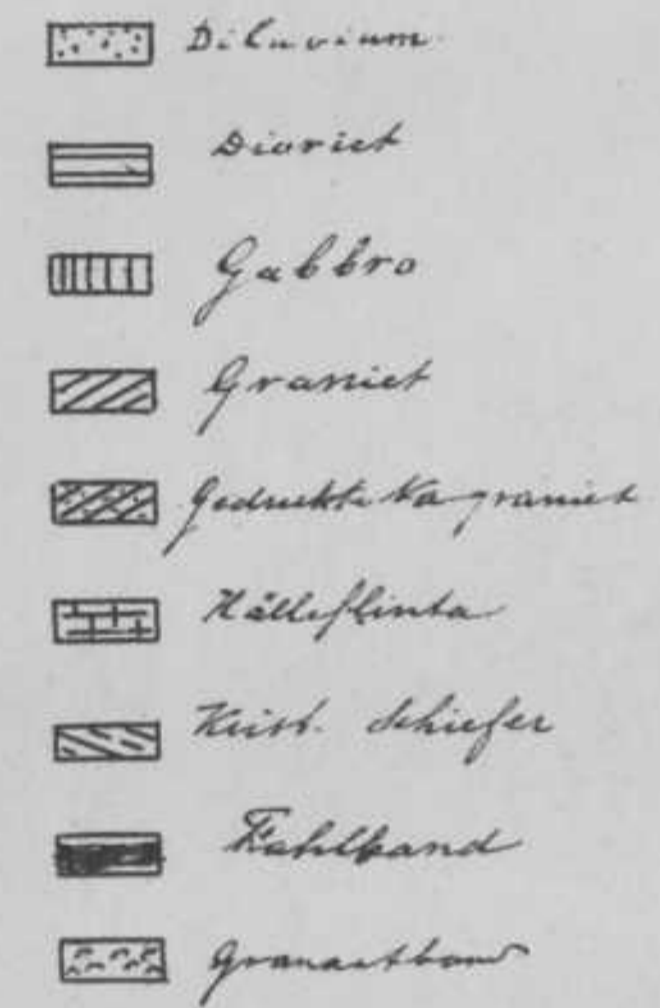 Diluvium
Dioriet
Gabbro
Graniet
Gedruckte Na graniet
Hälleflinta
Krist. Schiefer
Fahlband
Granaatband